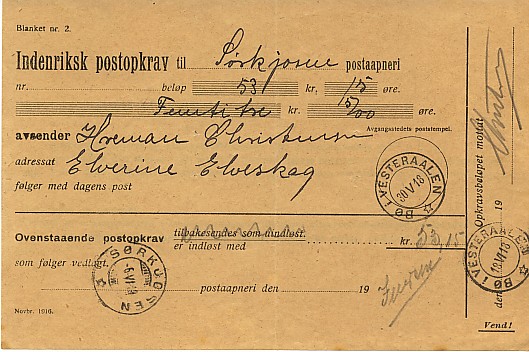 Blanket nr. 2.
Indenriksk postopkrav til Sørkjosen postaapneri
nr. beløp 53 kr. 15 øre.
Femtitre kr. 15/00 øre.
avsender Herman Christensen
Avgangsstedets poststempel.
adressat Elverine Elveskag
følger med dagens post
BØ I VESTERAALEN
30 V 18
Opkrævsbeløpet mottat
den 19
Ovenstaaende postopkrav tilbakesendes som uindløst.
er indløst med kr. 53,15
som følger vedlagt.
SØRKJOSEN
BØ I VESTERAALEN
18 VI 18
postaapneri den 19
Novbr. 1916.
Vend!